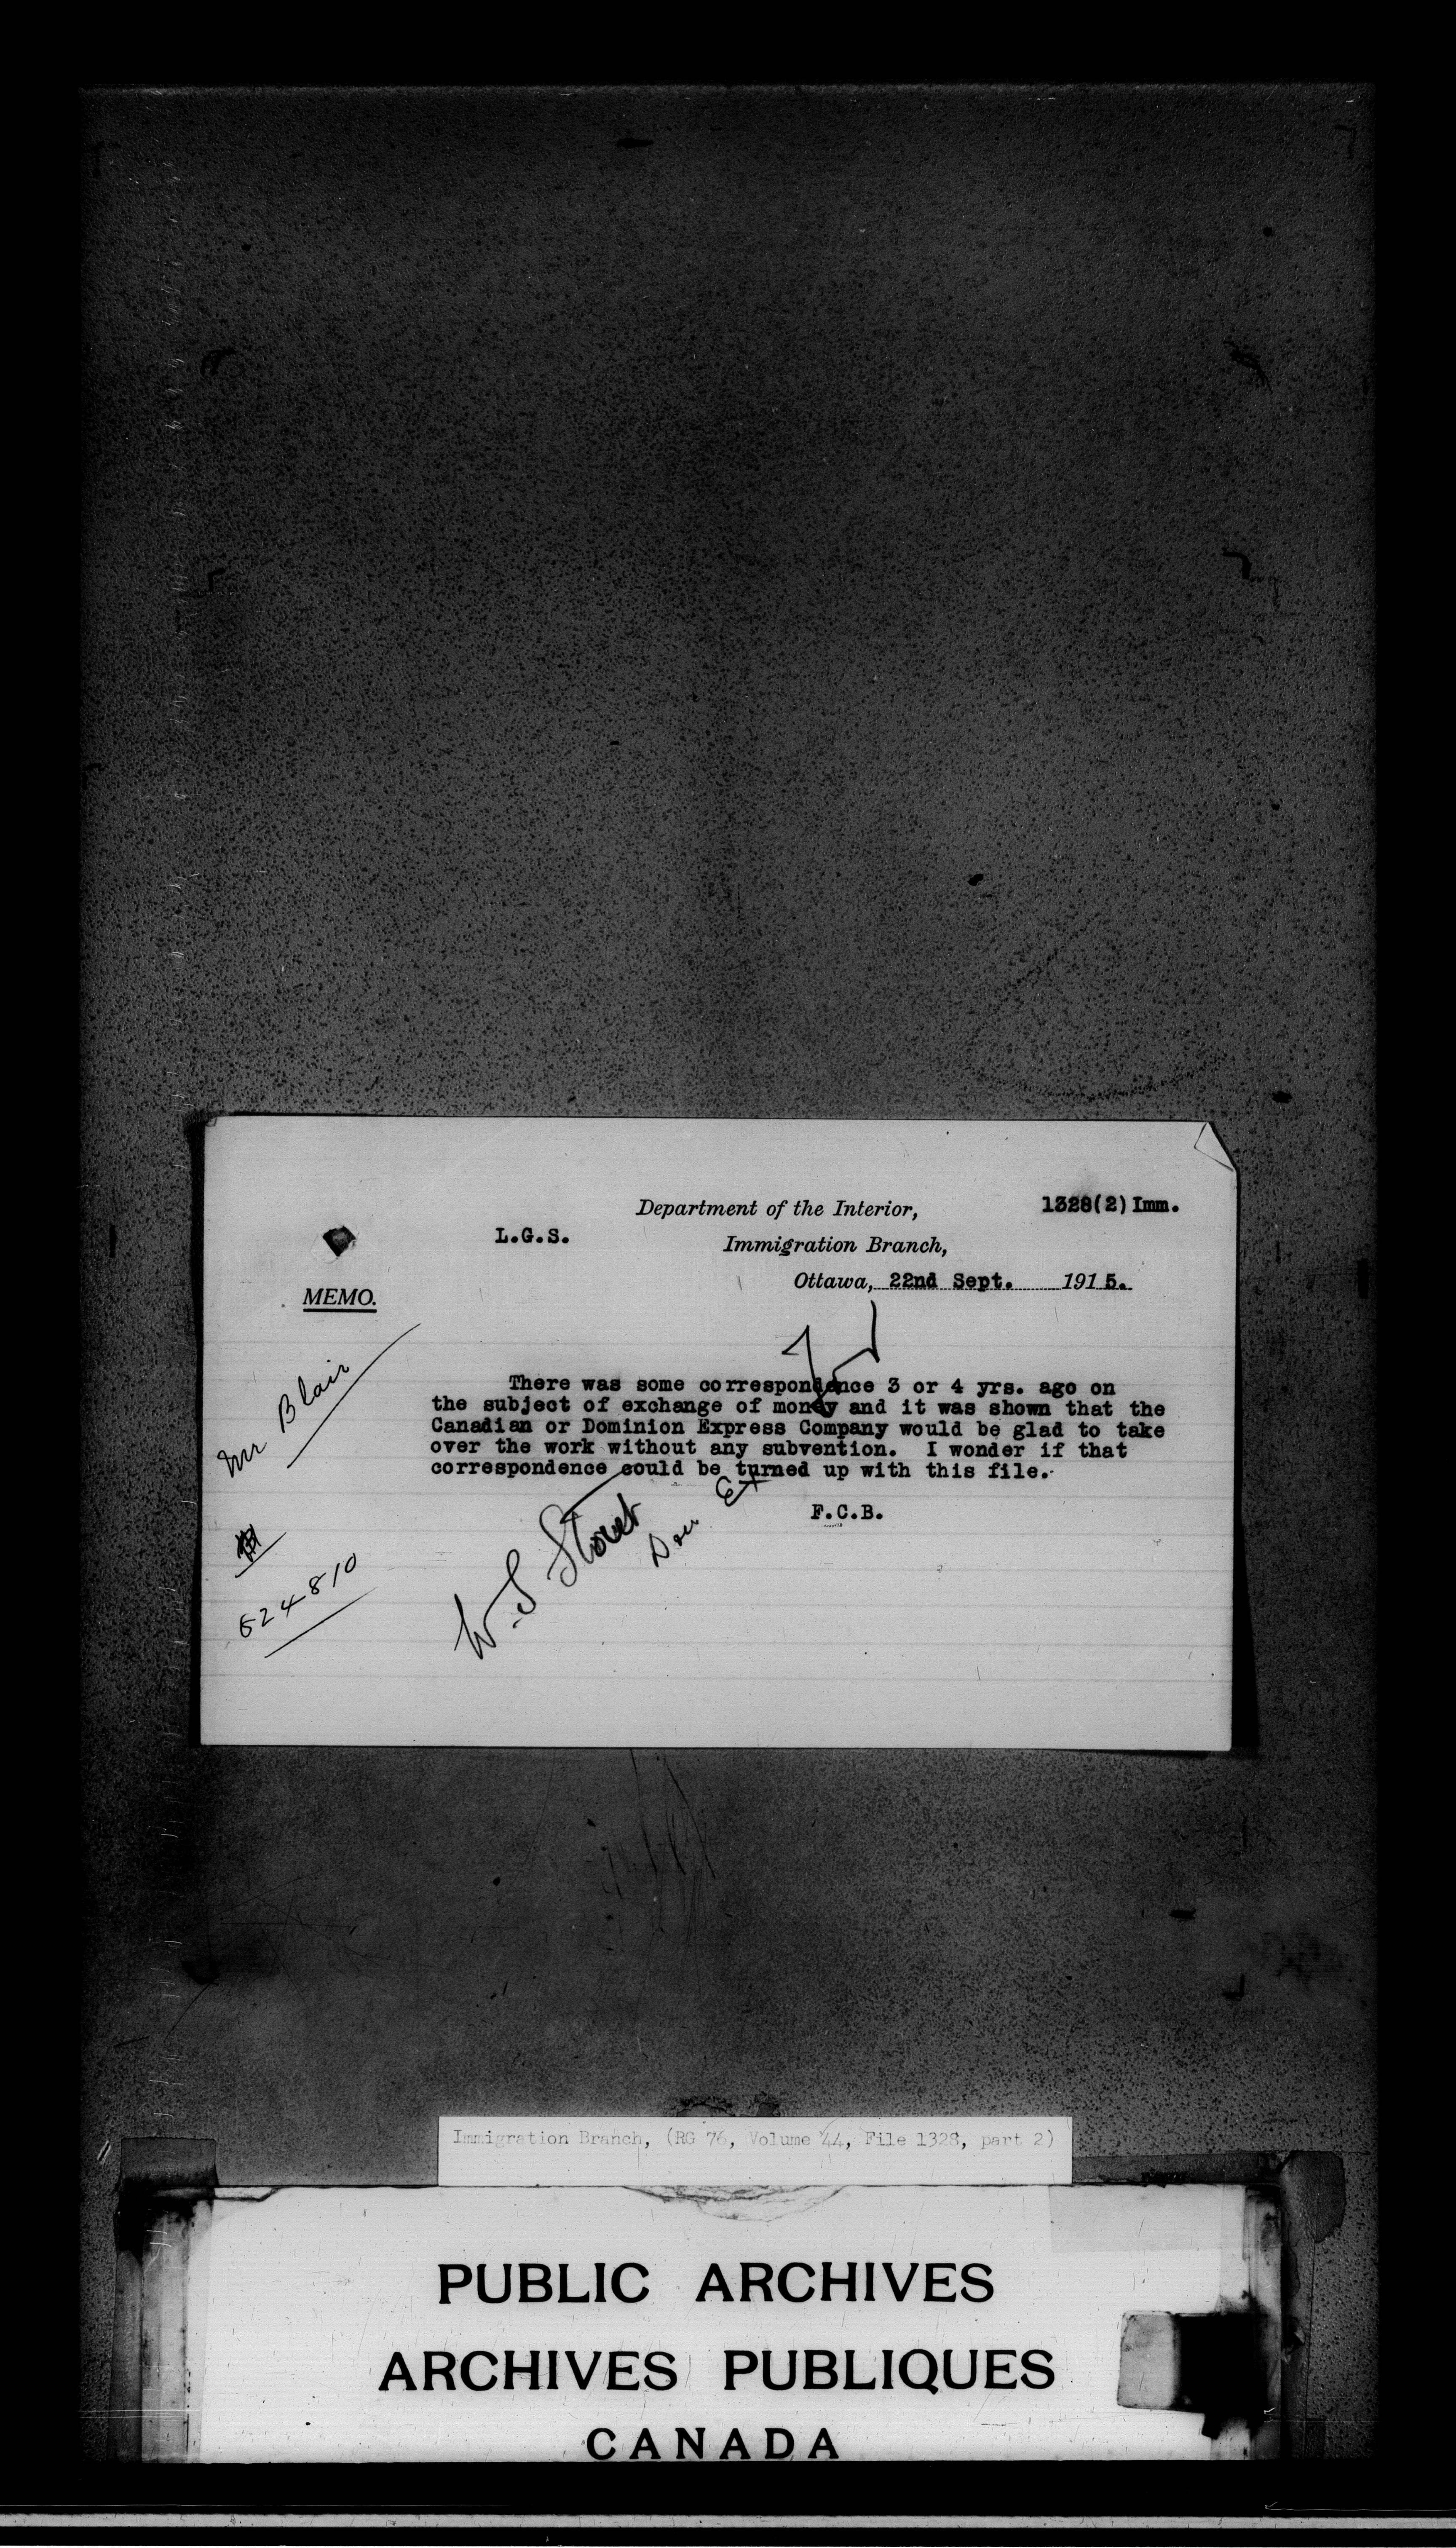 Department of the Interior,
1328(2) Imm.
L.G.S.
Immigration Branch,
Ottawa, 22nd Sept. 1915.
MEMO.
Mr Blair
There was some correspondence 3 or 4 yrs. ago on
the subject of exchange of money and it was shown that the
Canadian or Dominion Express Company would be glad to take
over the work without any subvention. I wonder if that
correspondence could be turned up with this file.
F.C.B.
W.S Stout
Dom Ex
624810
Immigration Branch, (RG 76, Volume 44, File 1328, part 2)
PUBLIC ARCHIVES
ARCHIVES PUBLIQUES
CANADA